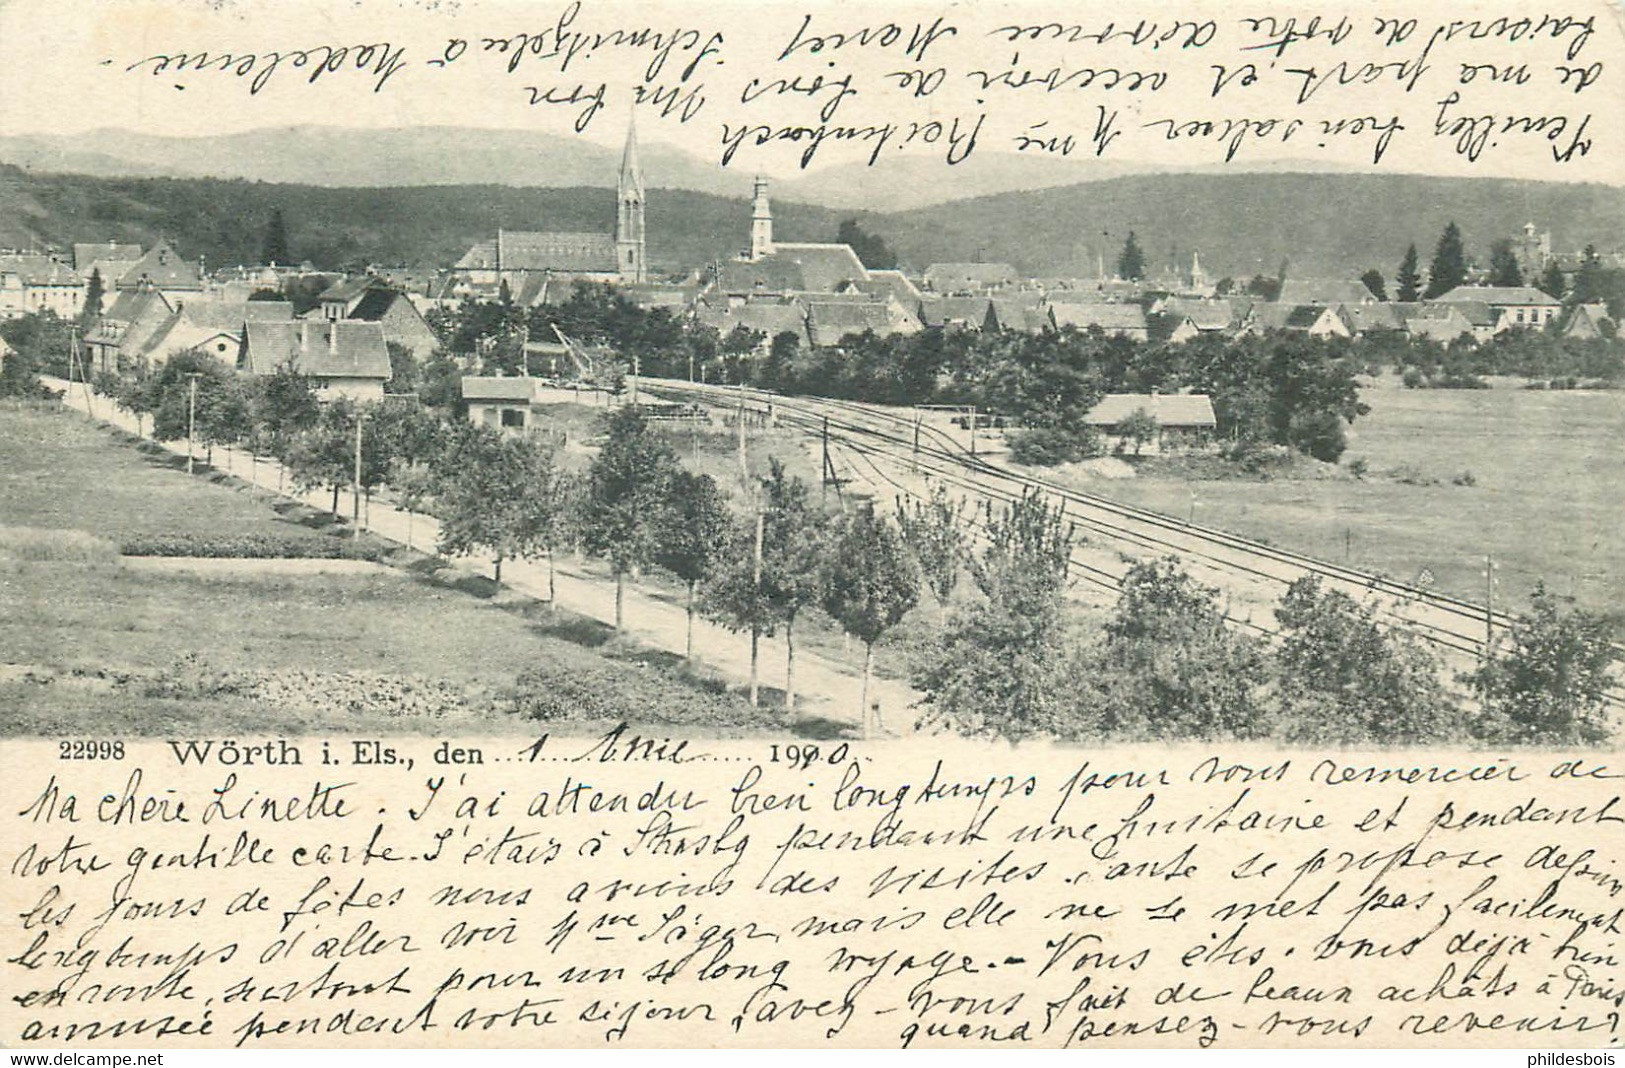 22998 Wörth i. Els., den 1 Avril 1910
Ma chère Linette. J'ai attendu bien longtemps pour vous remercier de
votre gentille carte. J'étais à Strasbg pendant une huitaine et pendant
les jours de fêtes nous avions des visites. Tante se propose depuis
longtemps d'aller voir Mme Jäger, mais elle ne se met pas facilement
en route, surtout pour un si long voyage. - Vous êtes-vous déjà bien
amusée pendant votre séjour, avez-vous fait de beaux achats à Paris
quand pensez-vous revenir?
Veuillez bien saluer Mme Breitenbach
de ma part et recevoir de bons
baisers de votre dévouée Marie
Un bon Schmützele à Madeleine.
phildesbois